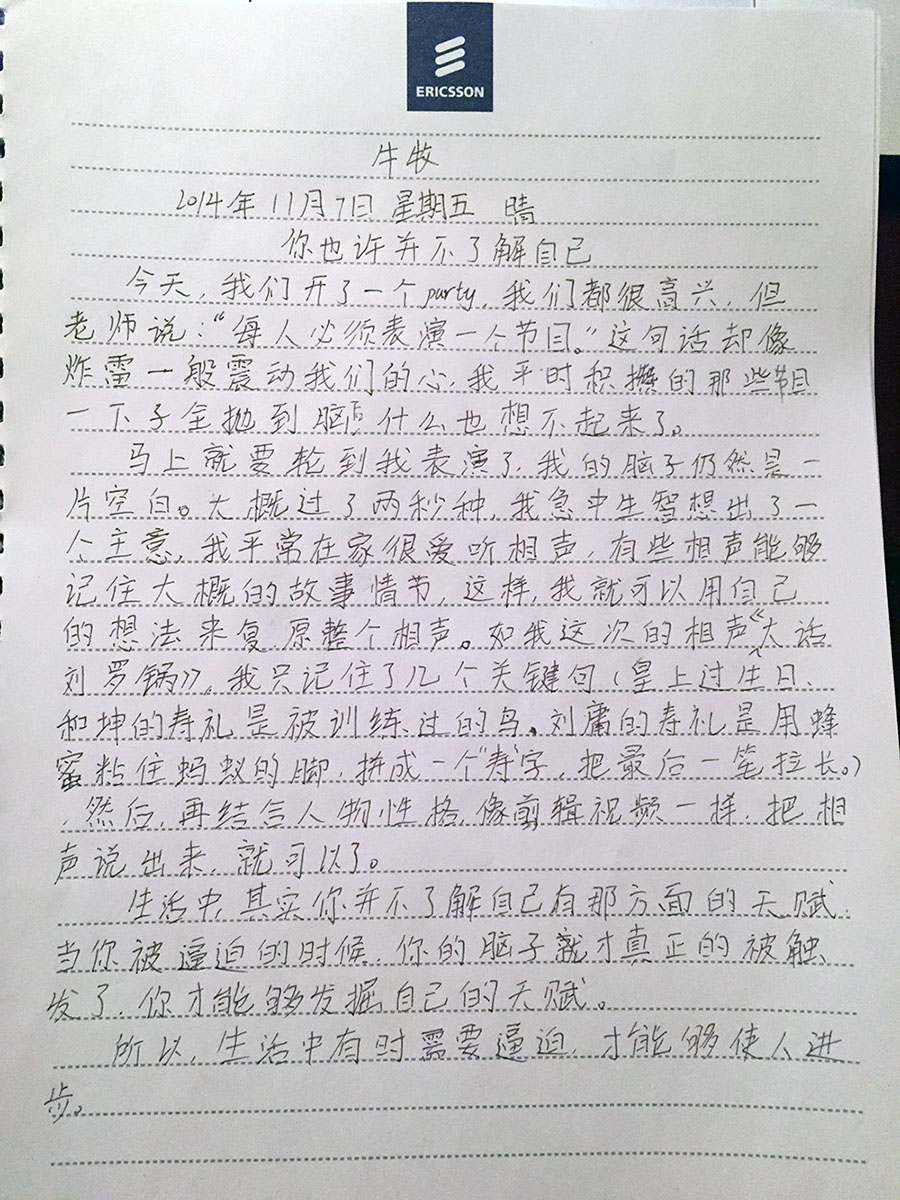 ERICSSON
牛牧
2014年11月7日 星期五 晴
你也许并不了解自己
今天，我们开了一个party，我们都很高兴，但
老师说：“每人必须表演一个节目。”这句话却像
炸雷一般震动我们的心，我平时积攒的那些节目
一下子全抛到脑后，什么也想不起来了。
马上就要轮到我表演了，我的脑子仍然是一
片空白。大概过了两秒种，我急中生智想出了一
个主意，我平常在家很爱听相声，有些相声能够
记住大概的故事情节，这样，我就可以用自己
的想法来复原整个相声。如我这次的相声《大话
刘罗锅》，我只记住了几个关键句（皇上过生日、
和坤的寿礼是被训练过的鸟、刘庸的寿礼是用蜂
蜜粘住蚂蚁的脚，拼成一个“寿”字，把最后一笔拉长。）
，然后，再结合人物性格，像剪辑视频一样，把相
声说出来，就可以了。
生活中，其实你并不了解自己有那方面的天赋，
当你被逼迫的时候，你的脑子就才真正的被触
发了，你才能够发掘自己的天赋。
所以，生活中有时需要逼迫，才能够使人进
步。